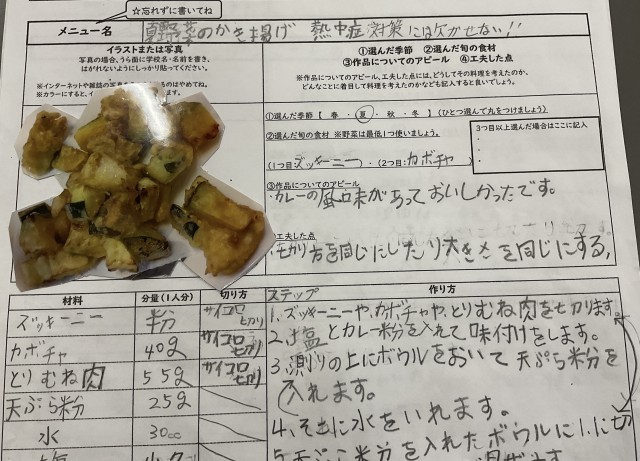 ☆忘れずに書いてね
メニュー名 夏野菜のかき揚げ 熱中症対策には欠かせない!!
イラストまたは写真
写真の場合、うら面に学校名・名前を書き、
はがれないようにしっかり貼ってください。
※インターネットや雑誌の写真を
るのはやめてね。
※カラーにすると、イ
①選んだ季節 ②選んだ旬の食材
③作品についてのアピール ④工夫した点
※作品についてのアピール、工夫した点には、どうしてその料理を考えたのか、
どんなことに着目して料理を考えたのかなども記入すると良いでしょう。
①選んだ季節【 春 ・ 夏 ・ 秋 ・ 冬 】(ひとつ選んで丸をつけましょう)
②選んだ旬の食材 ※野菜は最低1つ使いましょう。
3つ目以上選んだ場合はここに記入
(1つ目:ズッキーニ)・(2つ目:カボチャ
③作品についてのアピール
カレーの風味があっておいしかったです。
工夫した点
切り方を同じにしたり大きさを同じにする,
材料 分量(1人分) 切り方 作り方
ズッキーニー 半分 サイコロ切り
カボチャ 40g サイコロ切り
とりむね肉 55g サイコロ切り
天ぷら粉 25g
水 30cc
ステップ
1.ズッキーニーや、カボチャや、とりむね肉を切ります。
2.塩とカレー粉を入れて味付けをします。
3.測りの上にボウルをおいて天ぷら粉を
入れます。
4.そこに水をいれます。
5.天ぷら粉を入れたボウルに1.に切